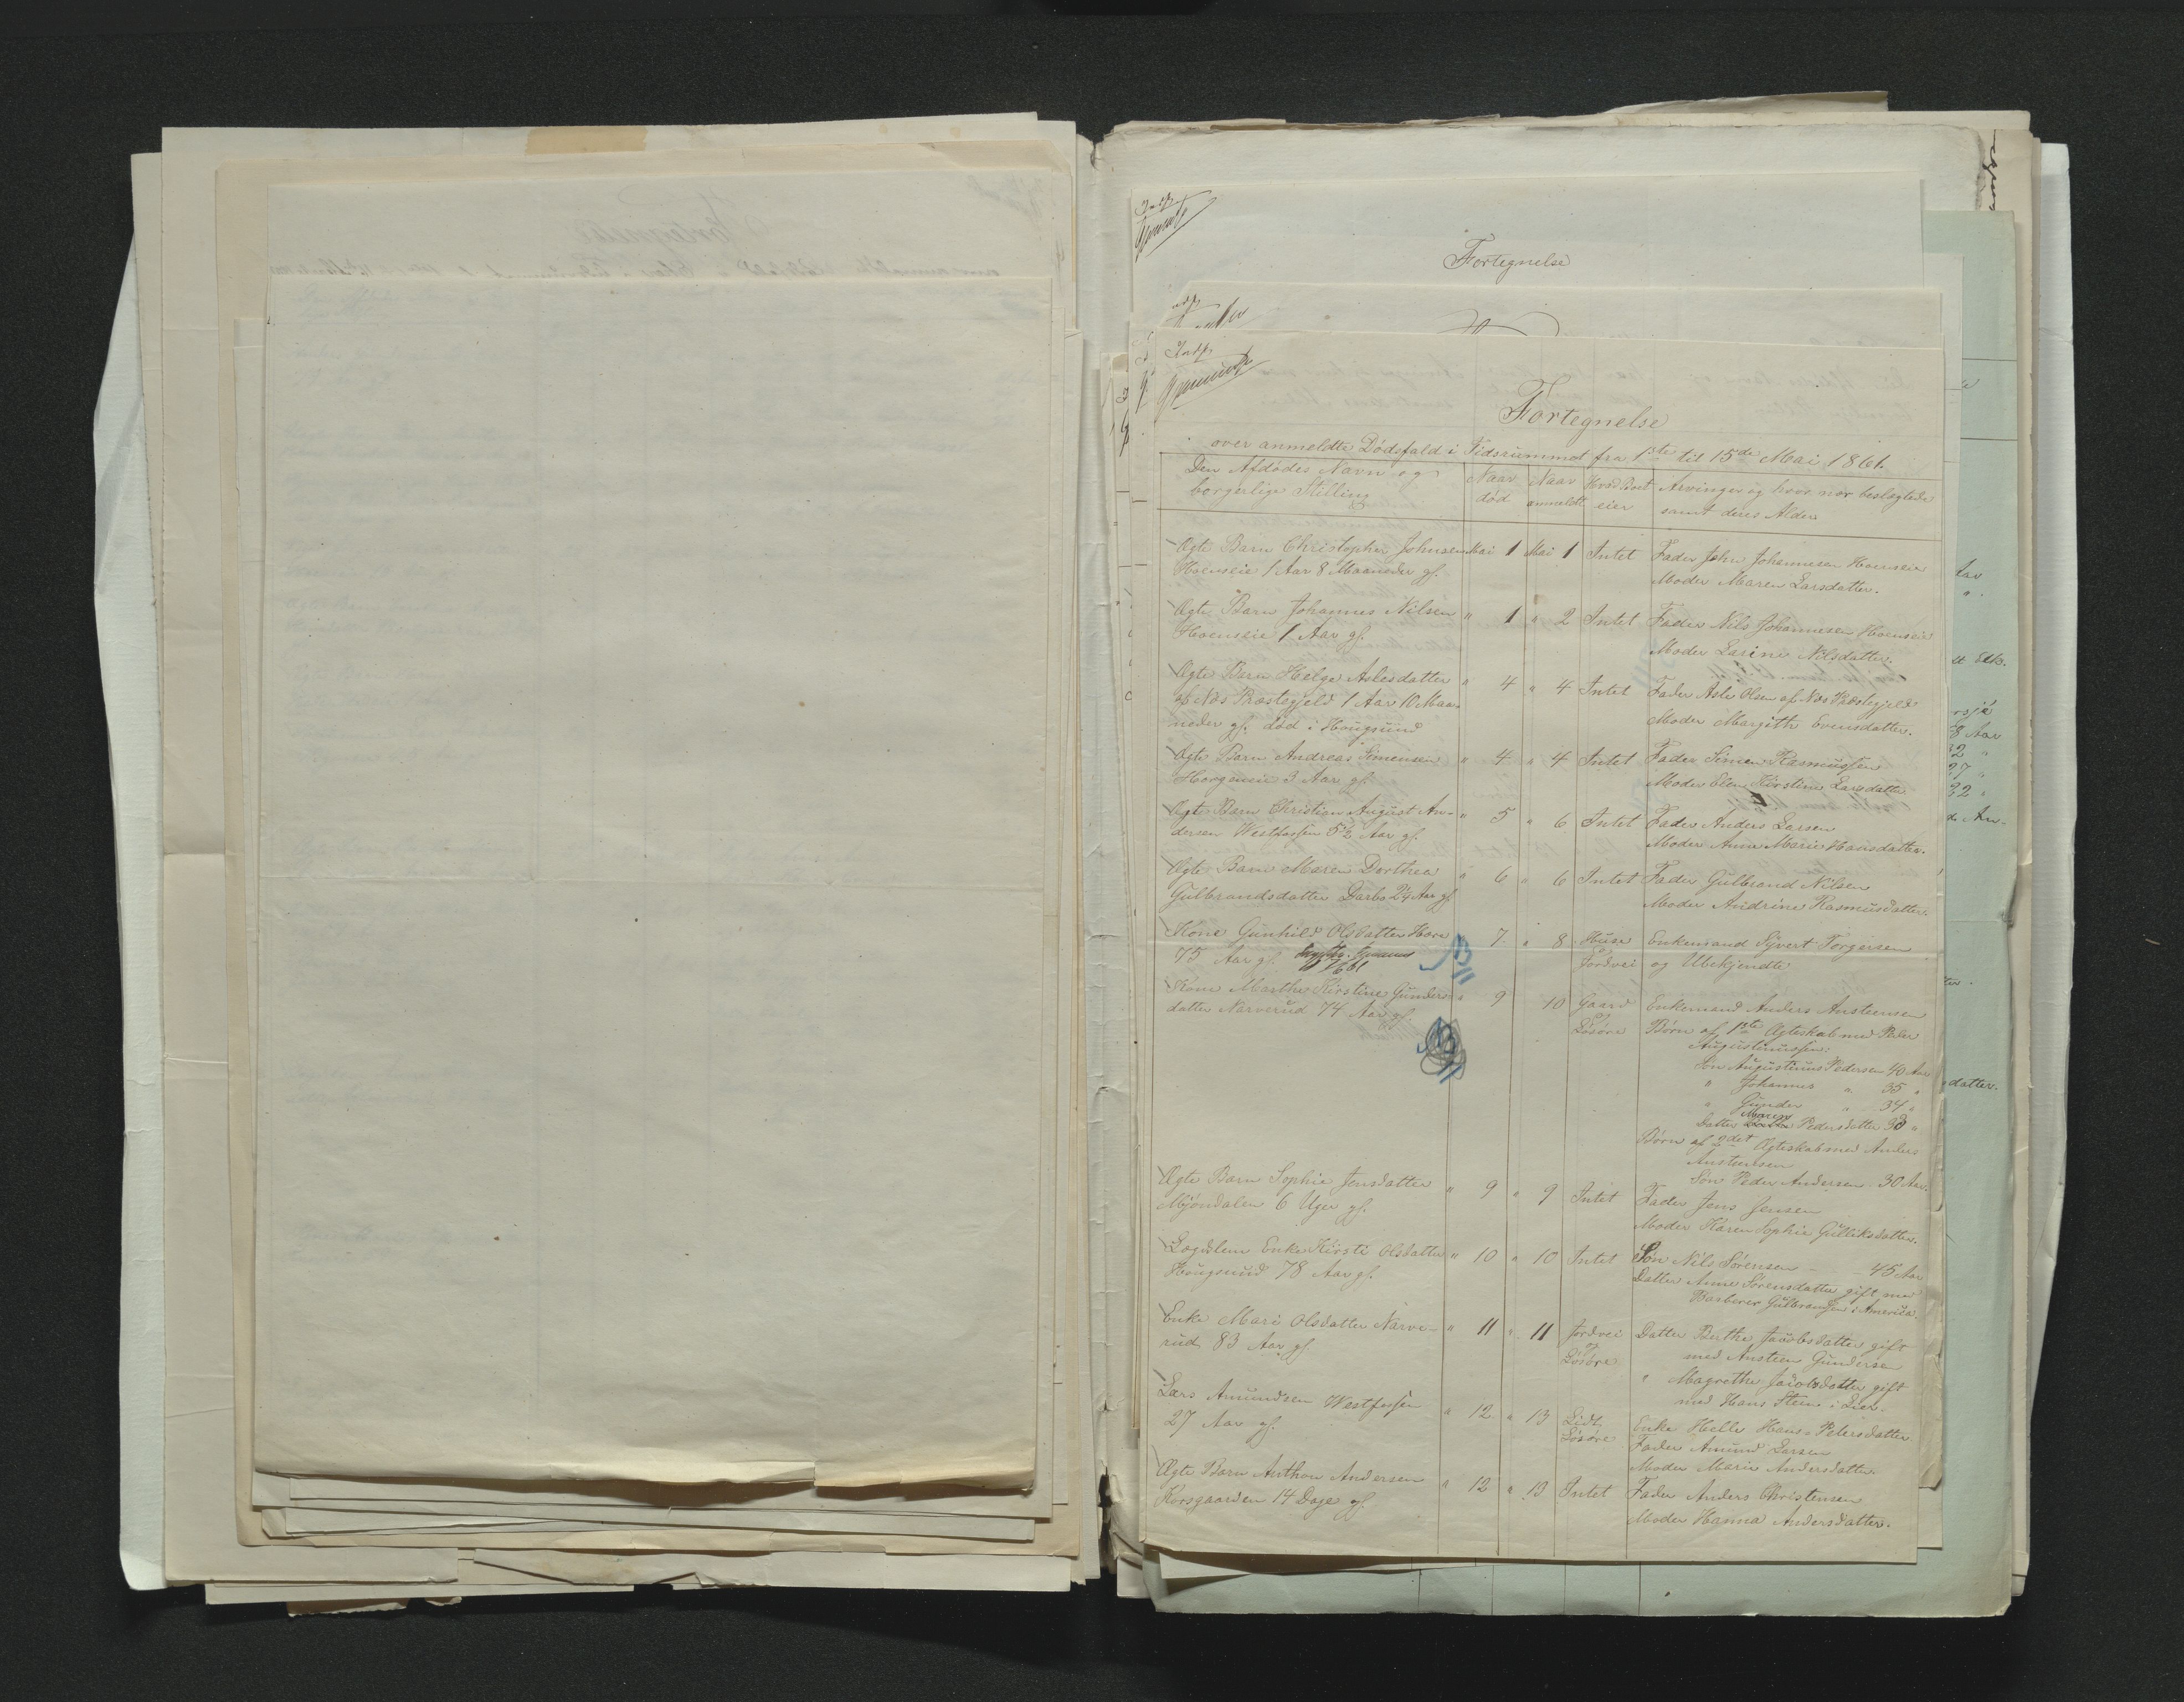 Fortegnelse
Fortegnelse
over anmeldte Dødsfald i Tidsrummet fra 1ste til 15de Mai 1861.
Den Afdødes Navn og borgerlige Stilling | Naar død | Naar anmeldt | Hvad Boet eier | Arvinger og hvor nær beslægtede samt deres Alder
Ægte Barn Christopher Johnsen Mai 1 Mai 1 Intet Fader John Johannesen Hoenseie
Hoenseie 1 Aar 8 Maaneder gl. Moder Maren Larsdatter.
Ægte Barn Johannes Nilsen " 1 " 2 Intet Fader Nils Johannesen Hoenseie
Hoenseie 1 Aar gl. Moder Larine Nilsdatter.
Ægte Barn Helge Aslesdatter " 4 " 4 Intet Fader Asle Olsen af Næs Præstegjeld
af Næs Præstegjeld 1 Aar 10 Maa- Moder Margith Evensdatter.
neder gl. død i Hougsund
Ægte Barn Andreas Simensen " 4 " 4 Intet Fader Simen Rasmussen
Horgeneie 3 Aar gl. Moder Elen Kirstine Larsdatter
Ægte Barn Christian August An- " 5 " 6 Intet Fader Anders Larsen
dersen Westfossen 5½ Aar gl. Moder Anne Marie Hansdatter.
Ægte Barn Maren Dorthea " 6 " 6 Intet Fader Gulbrand Nilsen
Gulbrandsdatter Darbo 2¼ Aar gl. Moder Andrine Rasmusdatter.
Kone Gunhild Olsdatter Hore " 7 " 8 Huse Enkemand Syvert Torgersen
75 Aar gl. Jordvei og Ubekjendte
Kone Marthe Kirstine Gunders- " 9 10 Gaard Enkemand Anders Ansteensen
datter Narverud 74 Aar gl. Løsøre Børn af 1ste Ægteskab med Peder
Augustinussen:
Søn Augustinus Pedersen 40 Aar
" Johannes " 35 "
" Gunder " 34 "
Datter Maren Pedersdatter 38 "
Børn af 2det Ægteskab med Anders
Ansteensen
Søn Peder Andersen 30 Aar.
Ægte Barn Sophie Jensdatter " 9 " 9 Intet Fader Jens Jensen
Mjøndalen 6 Uger gl. Moder Karen Sophie Gulliksdatter.
Lægdslem Enke Kirsti Olsdatter " 10 " 10 Intet Søn Nils Sørensen - - 45 Aar
Hougsund 78 Aar gl. Datter Anne Sørensdatter gift med
Barberer Gulbransen i America.
Enke Mari Olsdatter Narve- " 11 " 11 Jordvei Datter Berthe Jacobsdatter gift
rud 83 Aar gl. Løsøre med Ansteen Gundersen
" Magrethe Jacobsdatter gift
med Hans Steen i Lier.
Lars Amundsen Westfossen " 12 " 13 Lidt Enke Helle Hans-Petersdatter.
27 Aar gl. Løsøre Fader Amund Larsen
Moder Marie Andersdatter.
Ægte Barn Anthon Andersen " 12 " 13 Intet Fader Anders Christensen
Korsgaarden 14 Dage gl. Moder Hanna Andersdatter.